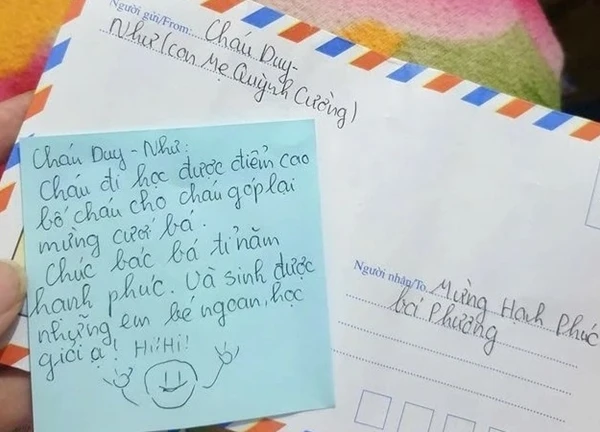 Người gửi/From: Cháu Duy-
Như (con Mẹ Quỳnh Cường)
Cháu Duy - Như:
Cháu đi học được điểm cao
bố cháu cho cháu góp lại
mừng cưới bá.
Chúc bác bá tỉ năm
hạnh phúc. Và sinh được
những em bé ngoan, học
giỏi ạ! Hi!Hi!
Người nhận/To: Mừng Hạnh Phúc
bá Phương